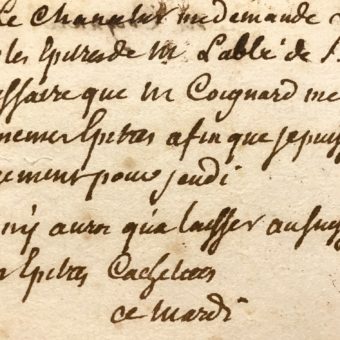 Le Chancelier me demande
les Epitres de Mr L'abbé de S.
essaire que Mr Coignard me
memes Epitres afin que je puis
ement pour jeudi
n'y aura qu'a laisser au suis
Epitres Cachetées
ce Mardi